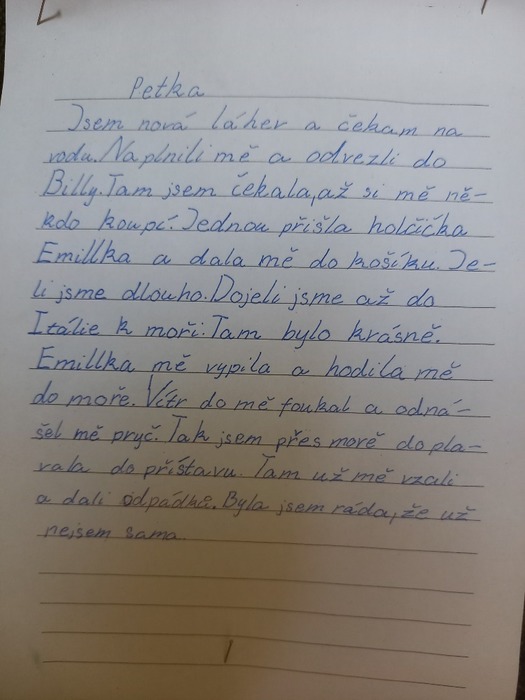 Petka
Jsem nová láhev a čekam na
vodu. Naplnili mě a odvezli do
Billy. Tam jsem čekala, až si mě ně-
kdo koupí. Jednou přišla holčička
Emillka a dala mě do košíku. Je-
li jsme dlouho. Dojeli jsme až do
Itálie k moři. Tam bylo krásně.
Emillka mě vypila a hodila mě
do moře. Vítr do mě foukal a odná-
šel mě pryč. Tak jsem přes moře dopla-
vala do přístavu. Tam už mě vzali
a dali odpádků. Byla jsem ráda, že už
nejsem sama.